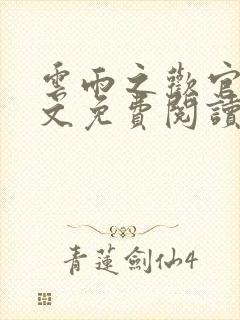 雲雨之歡官
文免費閱讀
青蓮劍仙4